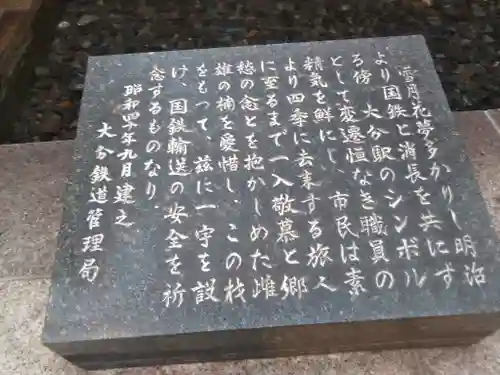 雪月花夢多かりし明治
より国鉄と消長を共にす
る傍 大分駅のシンボル
として変遷恒なき職員の
精気を鮮にし、市民は素
より四季に去来する旅人
に至るまで一入敬慕と郷
愁の念とを抱かしめた雌
雄の楠を愛惜し、この材
をもって、茲に一宇を設
け、国鉄輸送の安全を祈
念するものなり
昭和四十年九月建之
大分鉄道管理局